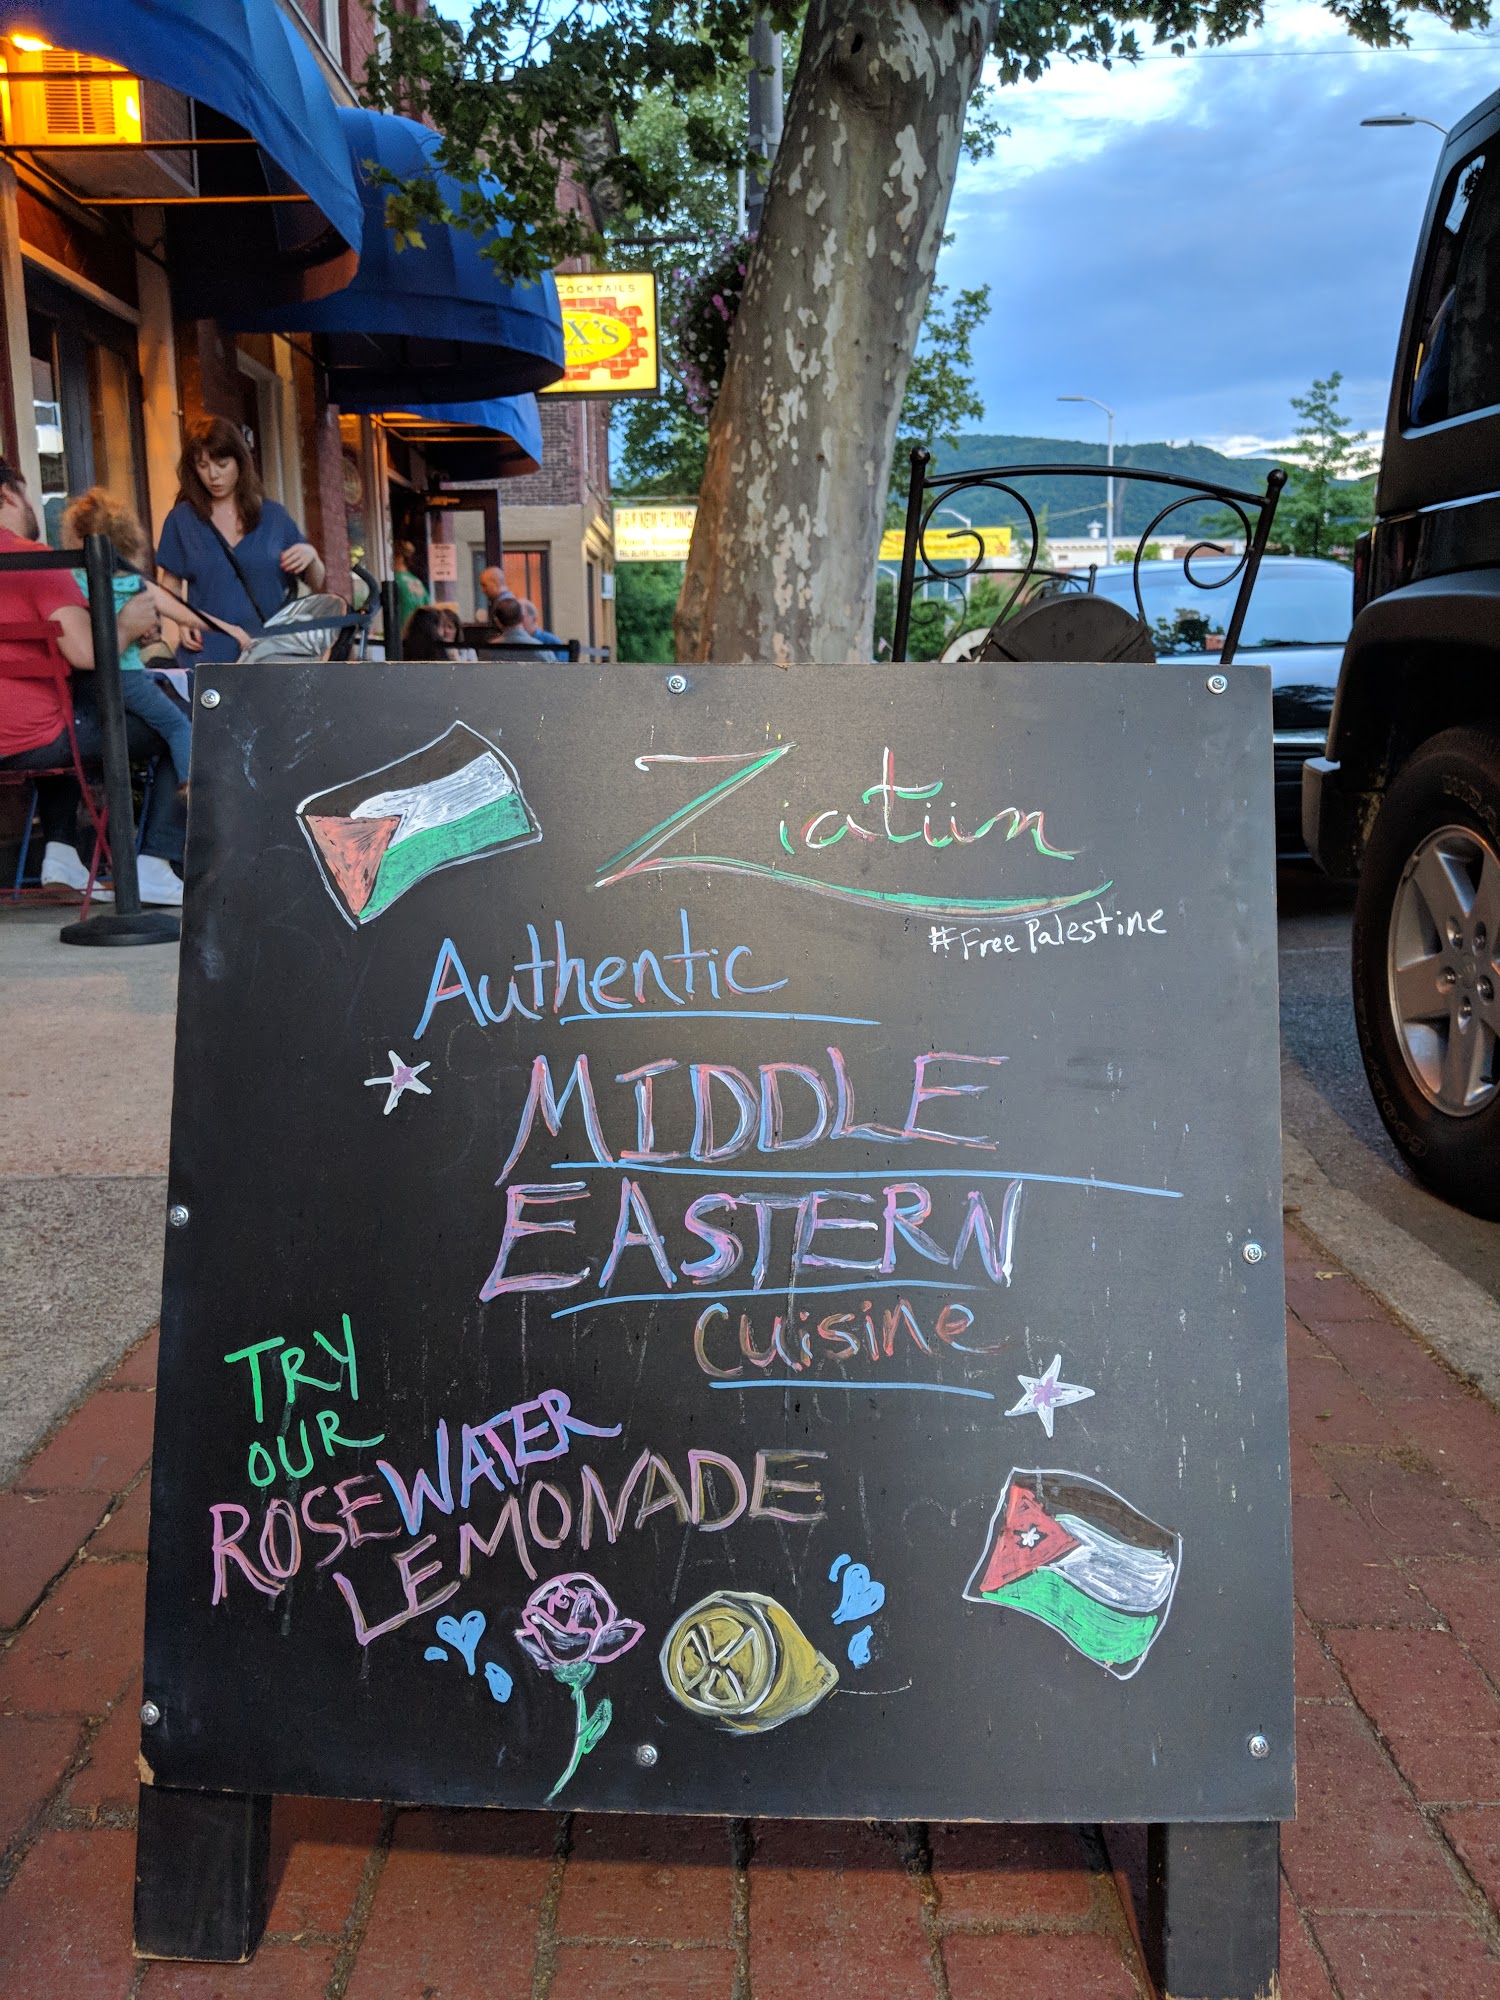 COCKTAILS
X'S
Ziatiin
#Free Palestine
Authentic
MIDDLE
EASTERN
Cuisine
TRY
OUR
ROSEWATER
LEMONADE